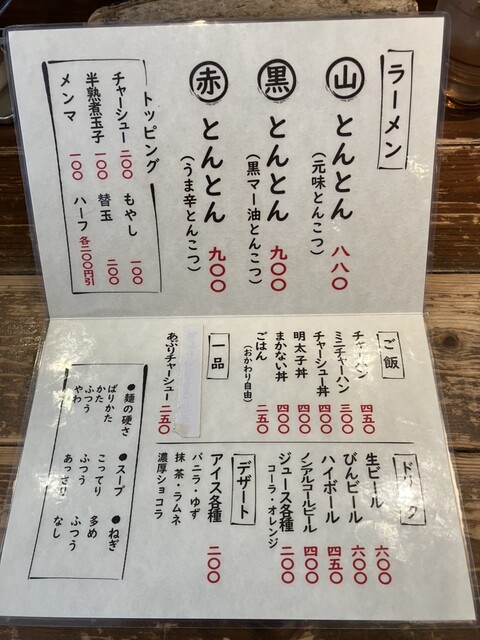 ラーメン
山 とんとん 八八〇
(元味とんこつ)
黒 とんとん 九〇〇
(黒マー油とんこつ)
赤 とんとん 九〇〇
(うま辛とんこつ)
トッピング
チャーシュー 二〇〇
半熟煮玉子 一〇〇
メンマ 一〇〇
もやし 一〇〇
替玉 二〇〇
ハーフ 各二〇〇円引
ご飯
チャーハン 四五〇
ミニチャーハン 三〇〇
チャーシュー丼 四〇〇
明太子丼 四〇〇
まかない丼 四〇〇
ごはん 二五〇
(おかわり自由)
一品
あぶりチャーシュー 二五〇
ドリンク
生ビール 六〇〇
びんビール 六〇〇
ハイボール 四五〇
ノンアルコールビール 四〇〇
ジュース各種 二〇〇
コーラ・オレンジ
デザート
アイス各種 二〇〇
バニラ・ゆず
抹茶・ラムネ
濃厚ショコラ
●麺の硬さ
ばりかた
かた
ふつう
やわ
●スープ
こってり
ふつう
あっさり
●ねぎ
多め
ふつう
なし